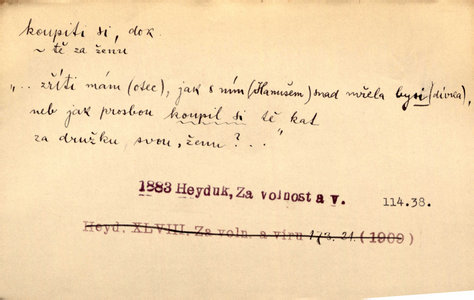 koupiti si, dok.
~ tě za ženu
„.. zříti mám (otec), jak s ním (Hanušem) snad mřela bysi (dívka),
neb jak prosbou koupil si tě kat
za družku svou, ženu?..."
1883 Heyduk, Za volnost a v. 114.38.
Heyd. XLVIII. Za voln. a víru 173.21. (1909)